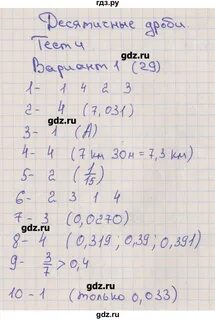 гдз.ру
Десятичные дроби
Тест 4
Вариант 1 (29)
1- 1 4 2 3
2- 4 (7,031)
3- 1 (А)
4- 4 (7 км 30м = 7,3 км)
5- 2 (1/15)
6- 2 3 1 4
7- 3 (0,0270)
8- 4 (0,319; 0,39; 0,391)
9- 3/7 > 0,4
10-1 (только 0,033)
гдз.ру